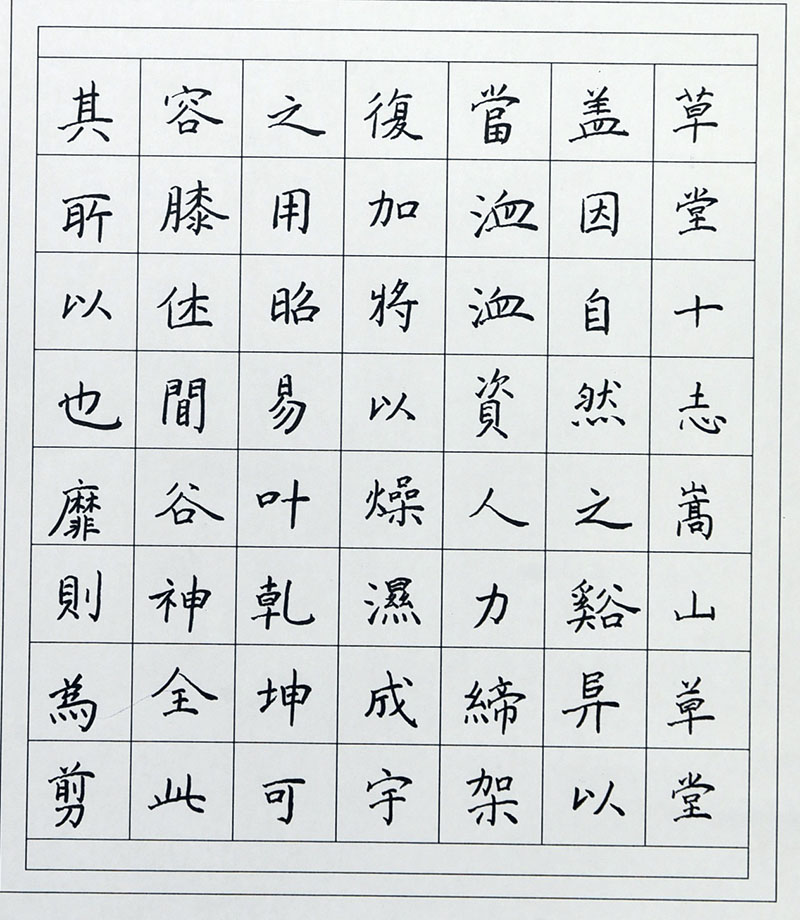 草堂十志嵩山草堂
盖因自然之谿异以
當洫洫資人力締架
復加將以燥濕成宇
之用昭易叶乾坤可
容膝休間谷神全此
其所以也靡則為剪